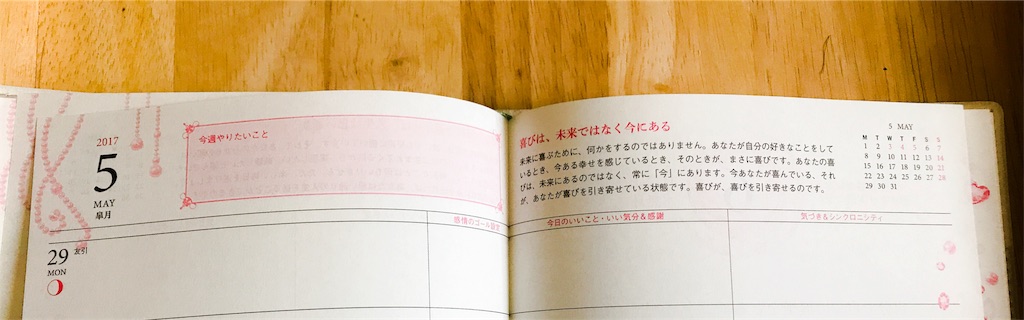 2017
5
MAY
皐月
今週やりたいこと
感情のゴール設定
29
MON
友引
喜びは、未来ではなく今にある
未来に喜ぶために、何かをするのではありません。あなたが自分の好きなことをして
いるとき、今ある幸せを感じているとき、そのときが、まさに喜びです。あなたの喜
びは、未来にあるのではなく、常に「今」にあります。今あなたが喜んでいる、それ
が、あなたが喜びを引き寄せている状態です。喜びが、喜びを引き寄せるのです。
5 MAY
M T W T F S S
1 2 3 4 5 6 7
8 9 10 11 12 13 14
15 16 17 18 19 20 21
22 23 24 25 26 27 28
29 30 31
今日のいいこと・いい気分&感謝
気づき&シンクロニシティ